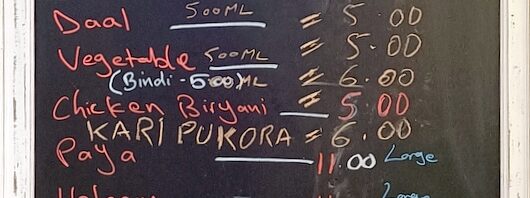 Daal 500ML = 5.00
Vegetable 500ML = 5.00
(Bindi - 500ML) = 6.00
Chicken Biryani = 5.00
KARI PUKORA = 6.00
Paya 11.00 Large